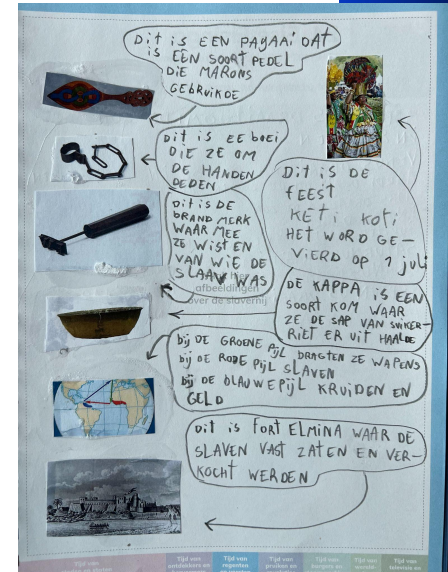 DIT IS EEN PAGAAI DAT
IS EEN SOORT PEDEL
DIE MARONS
GEBRUIKDE
DIT IS EE BOEI
DIE ZE OM
DE HANDEN
DEDEN
DIT IS DE
BRAND MERK
WAAR MEE
ZE WIST EN
VAN WIE DE
SLAAV WAS
DIT IS DE
FEEST
KETI KOTI
HET WORD GE-
VIERD OP 1 juli
afbeeldingen
over de slavernij
DE KAPPA IS EEN
SOORT KOM WAAR
ZE DE SAP VAN SUIKER-
RIET ER UIT HAALDE
bij DE GROENE Pijl BRAGTEN ZE WAPENS
bij DE RODE Pijl SLAVEN
bij DE BLAUWE Pijl KRUIDEN EN
GELD
DIT IS FORT ELMINA WAAR DE
SLAVEN VAST ZATEN EN VER-
KOCHT WERDEN
Tijd van
ontdekkers en
Tijd van
regenten
Tijd van
pruiken en
Tijd van
burgers en
Tijd van
wereld-
Tijd van
televisie en